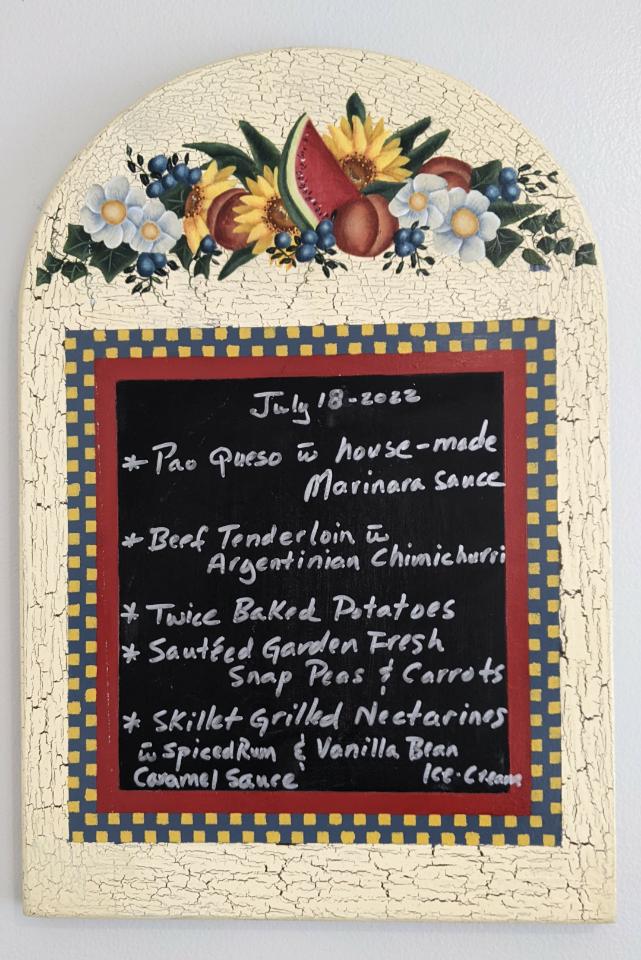 July 18-2022
* Pao Queso w̅ house-made
Marinara sauce
* Beef Tenderloin w̅
Argentinian Chimichurri
* Twice Baked Potatoes
* Sautéed Garden Fresh
Snap Peas & Carrots
* Skillet Grilled Nectarines
w̅ Spiced Rum & Vanilla Bean
Caramel Sauce Ice-Cream